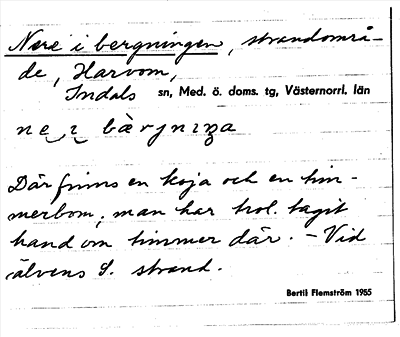 Nere i bergningen, strandområ-
de, Harvom,
Indals sn, Med. ö. doms. tg, Västernorrl. län
ne i bärjninga
Där finns en koja och en tim-
merbom; man har trol. tagit
hand om timmer där. - Vid
älvens S. strand.
Bertil Flemström 1955